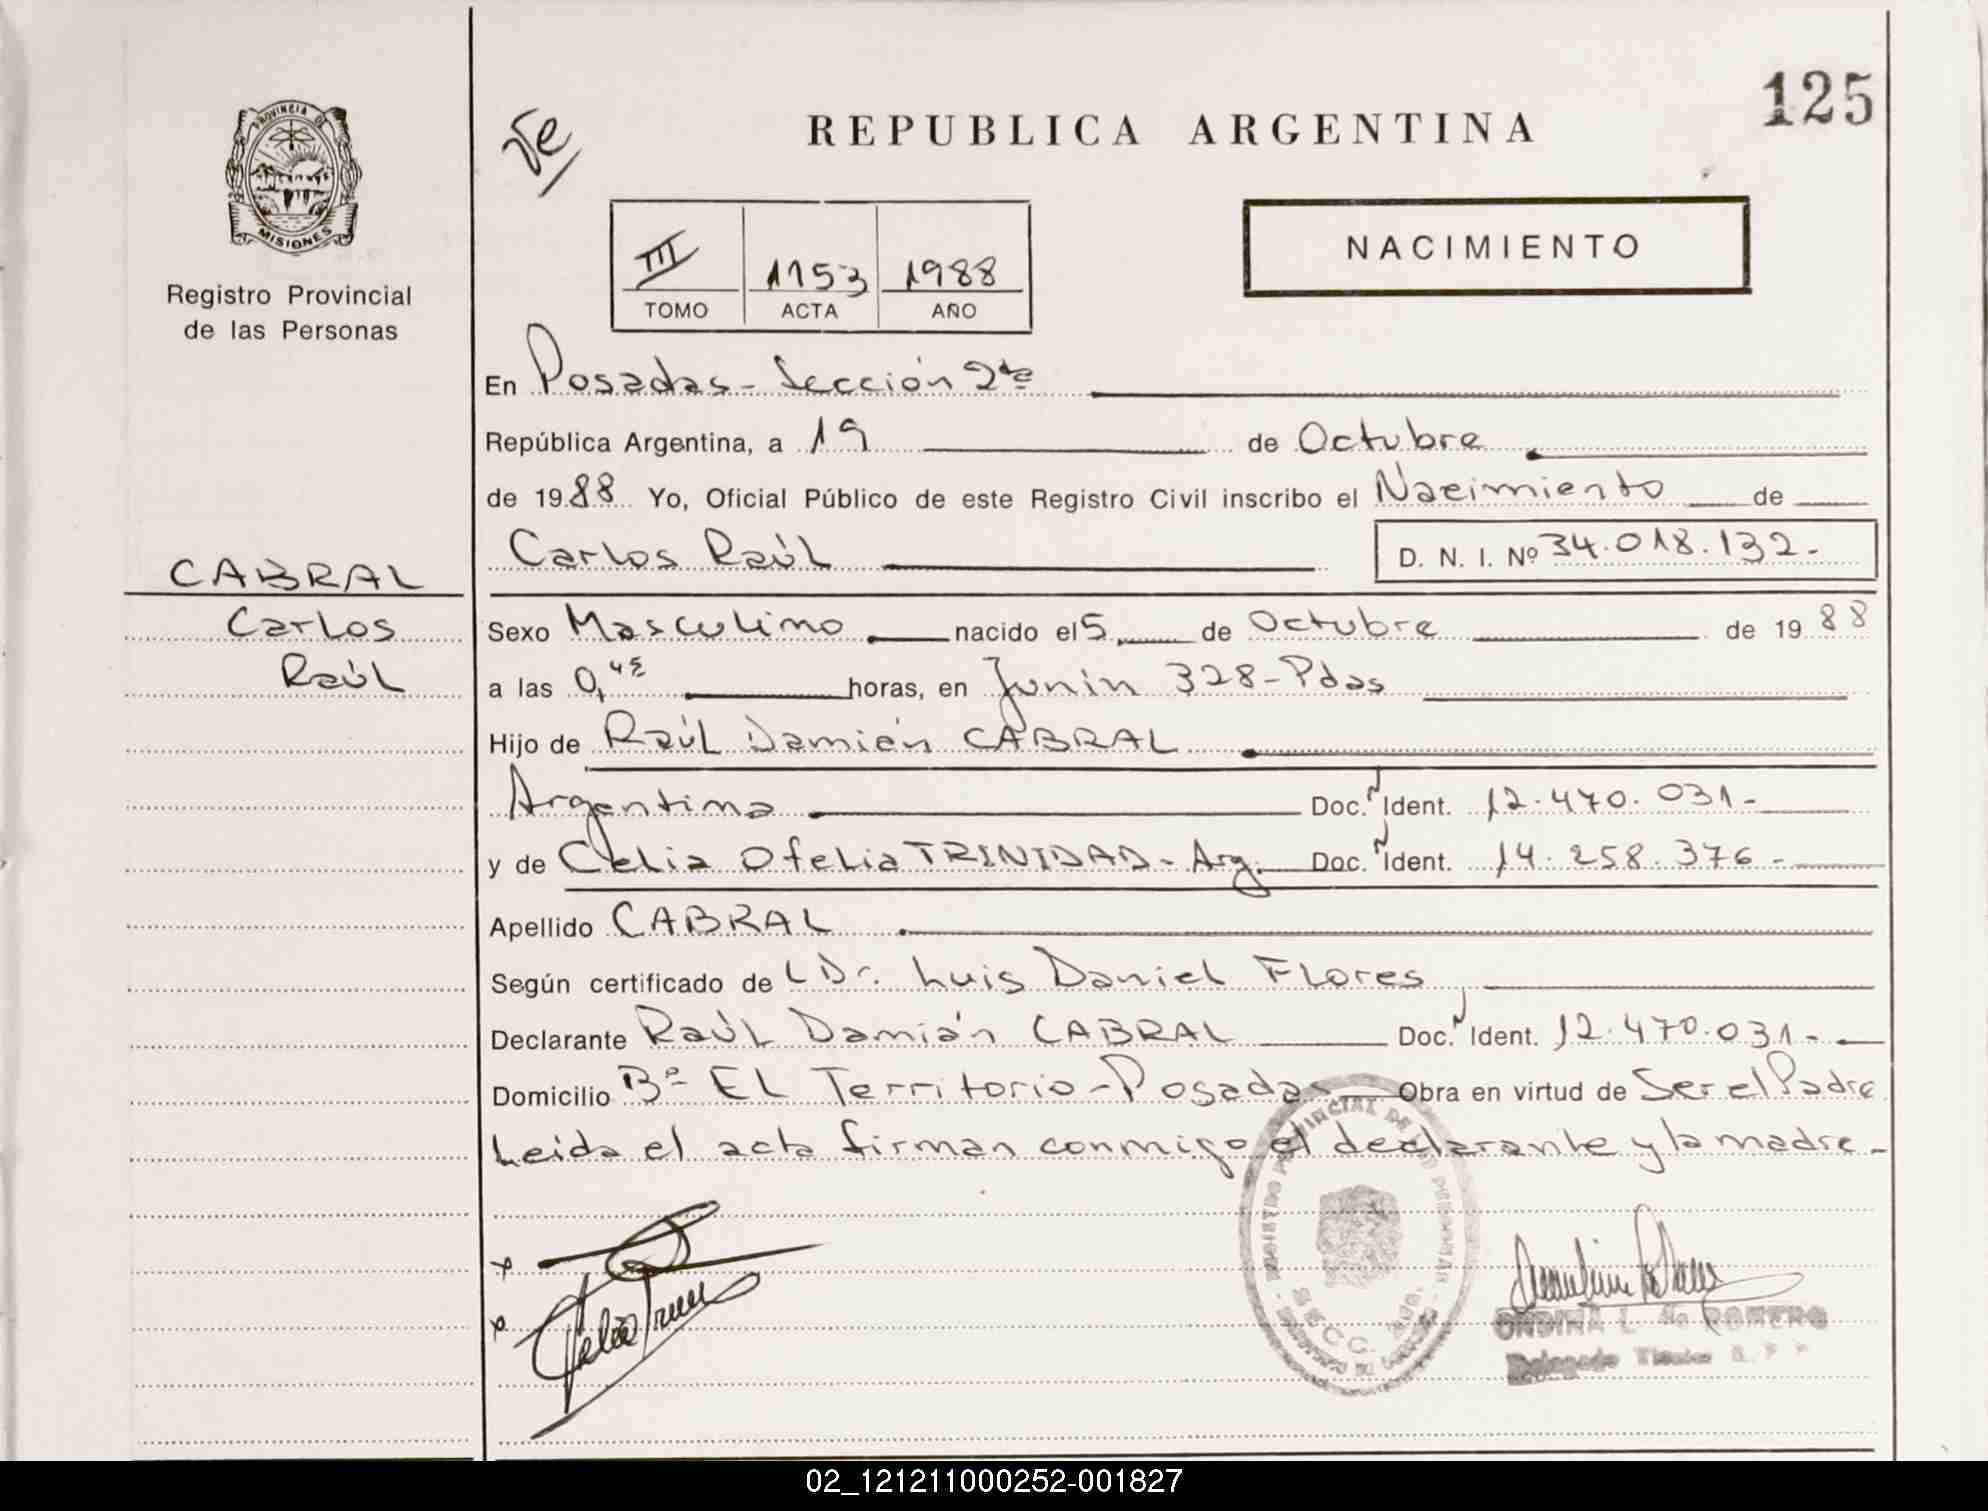 125
REPUBLICA ARGENTINA
PROVINCIA DE
MISIONES
Registro Provincial
de las Personas
NACIMIENTO
III 1153 1988
TOMO ACTA AÑO
En Posadas - Sección 2da
República Argentina, a 19 de Octubre
de 1988 Yo, Oficial Público de este Registro Civil inscribo el Nacimiento de
Carlos Raúl D. N. I. Nº 34.018.132.-
CABRAL
Carlos
Raúl
Sexo Masculino nacido el 5 de Octubre de 1988
a las 0,45 horas, en Junín 328 - Pdas
Hijo de Raúl Damián CABRAL
Argentina Doc. Ident. 12.470.031.-
y de Celia Ofelia TRINIDAD - Arg. Doc. Ident. 14.258.376.-
Apellido CABRAL
Según certificado de L Dr. Luis Daniel Flores
Declarante Raúl Damián CABRAL Doc. Ident. 12.470.031.-
Domicilio Bº EL Territorio - Posadas Obra en virtud de Ser el Padre
Leida el acta firman conmigo el declarante y la madre.-
ONDINA L. de ROMERO
Delegado
02_121211000252-001827